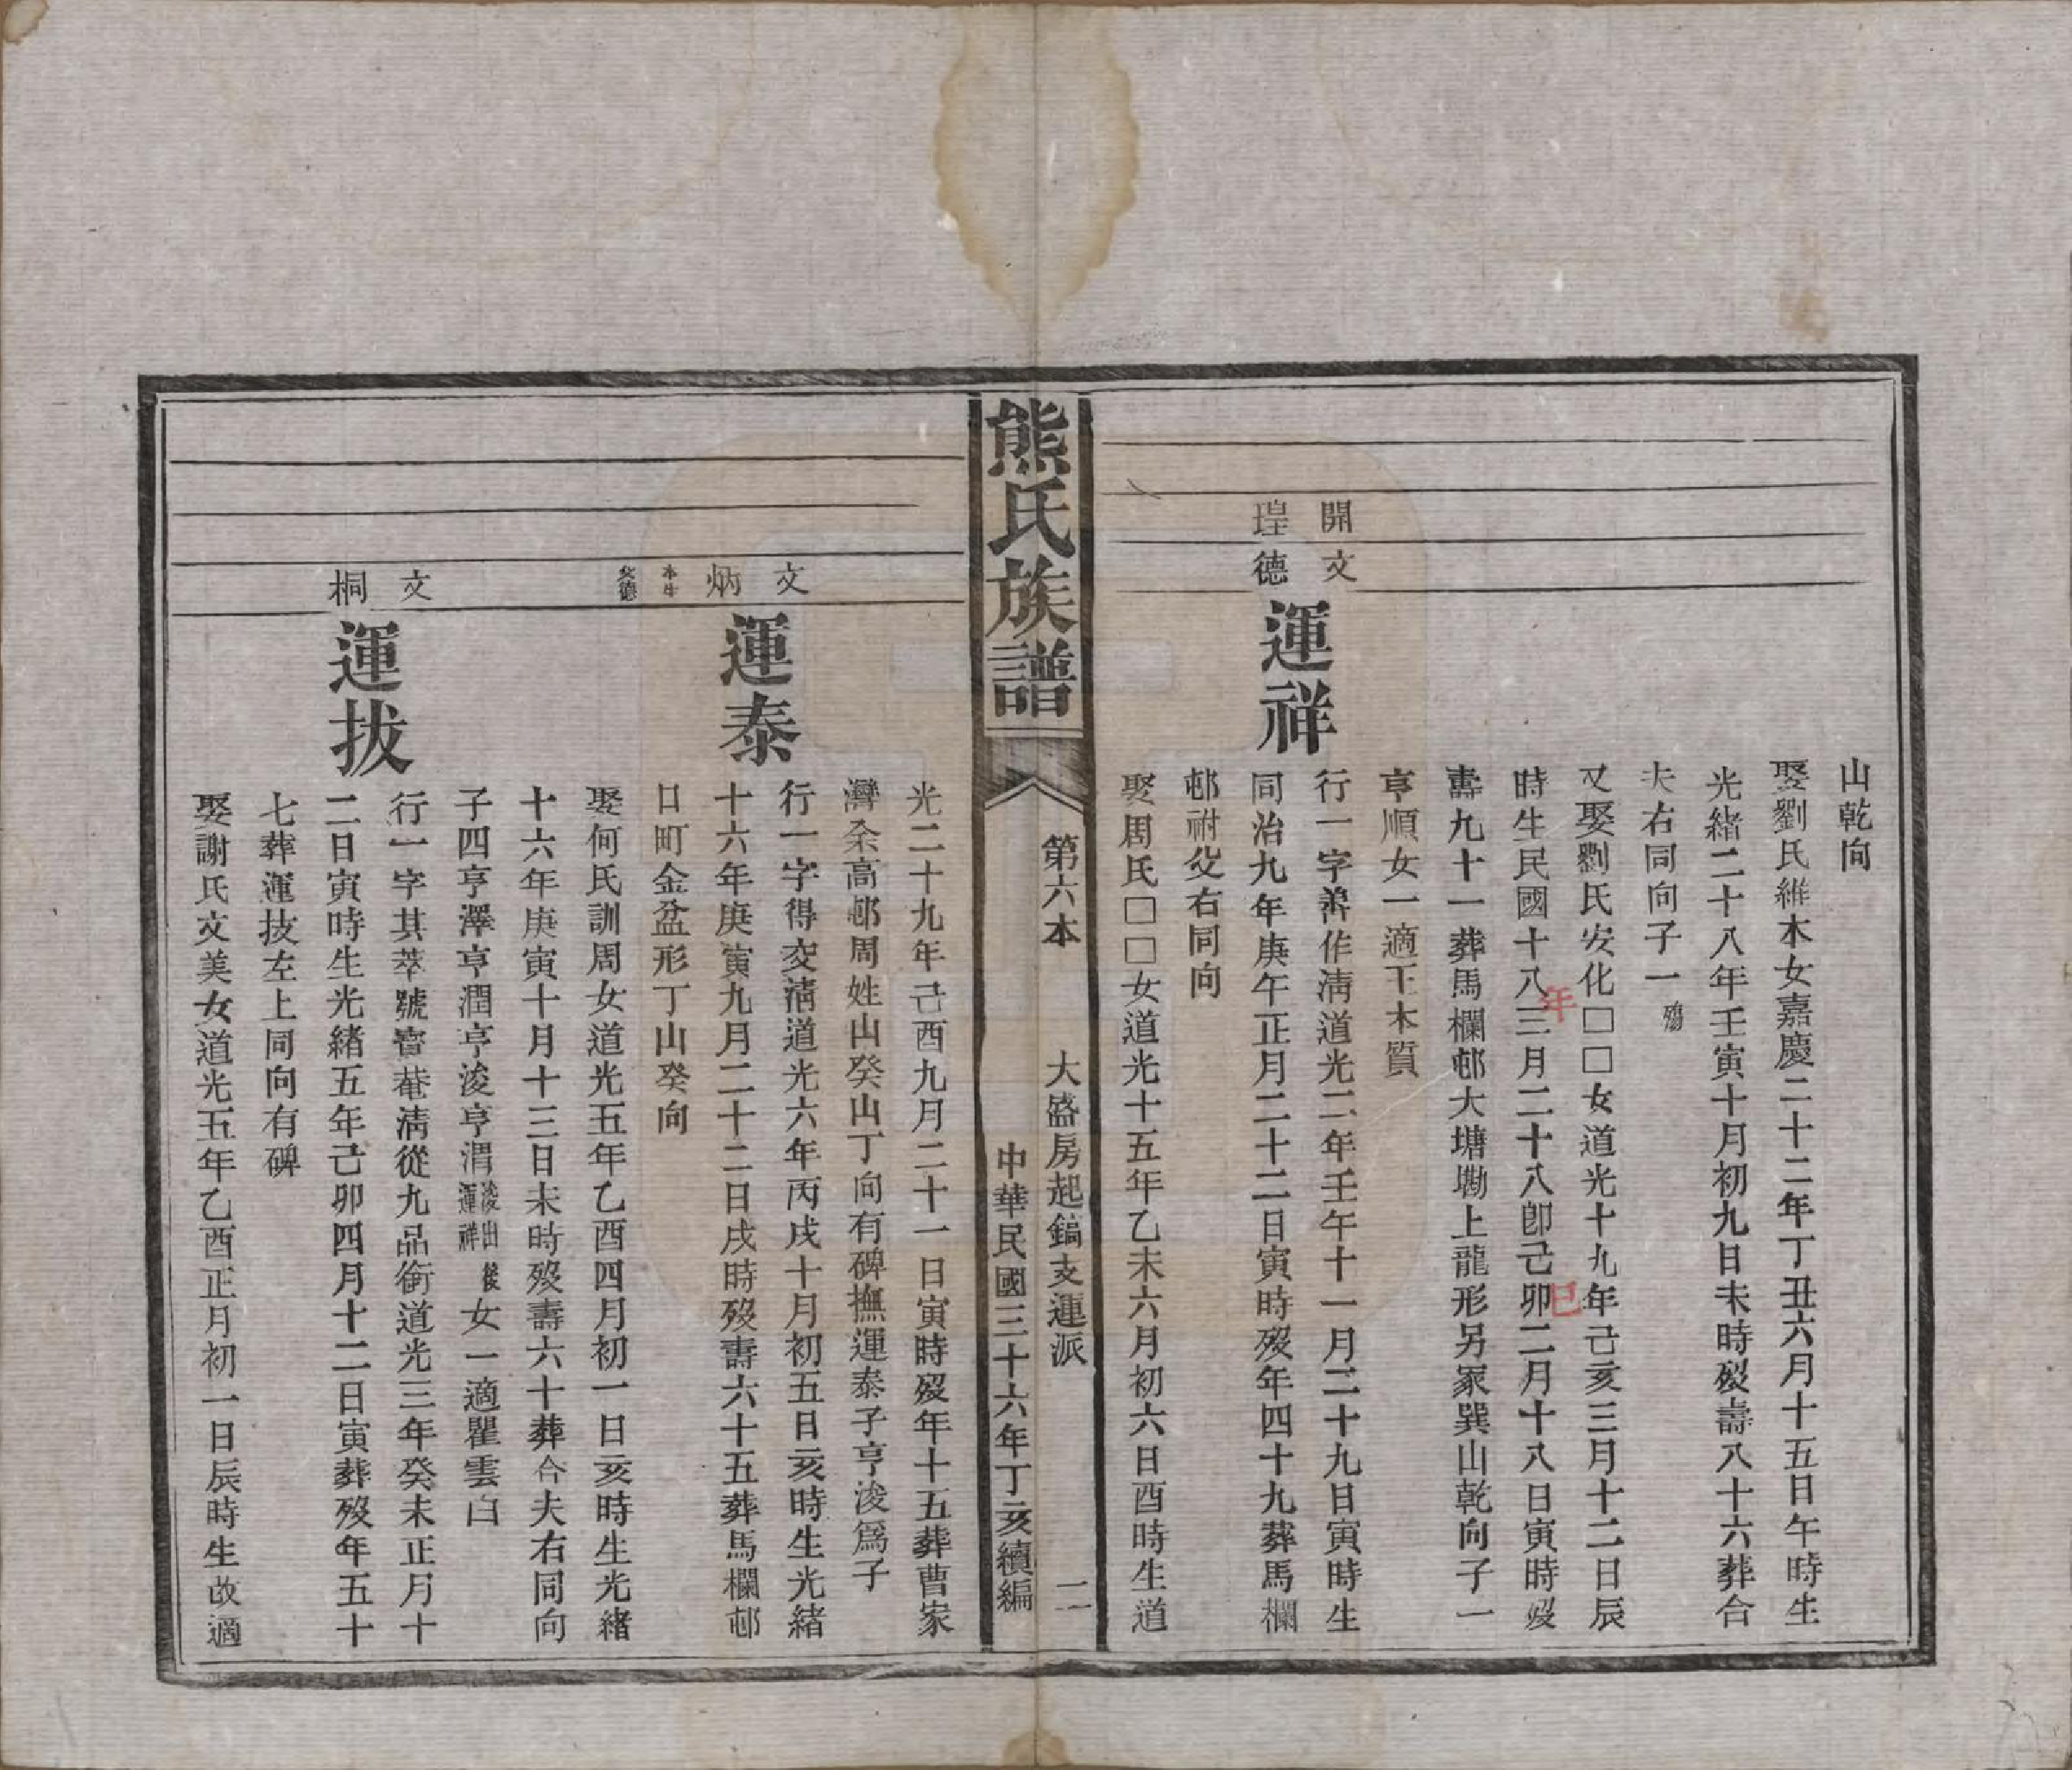 山乾向
娶劉氏維木女嘉慶二十二年丁丑六月十五日午時生
光緒二十八年壬寅十月初九日未時歿壽八十六葬合
夫右同向子一殤
又娶劉氏安化□□女道光十九年己亥三月十二日辰
時生民國十八年三月二十八卽己巳卯二月十八日寅時歿
壽九十一葬馬欄邨大塘墈上龍形另冢巽山乾向子一
亨順女一適王木質
開文
瑆德
運祥
行一字善作淸道光二年壬午十一月二十九日寅時生
同治九年庚午正月二十二日寅時歿年四十九葬馬欄
邨祔父右同向
娶周氏□□女道光十五年乙未六月初六日酉時生道
熊氏族譜
第六本
大盛房起鎬支運派
二
中華民國三十六年丁亥續編
光二十九年己酉九月二十一日寅時歿年十五葬曹家
灣余高邨周姓山癸山丁向有碑撫運泰子亨浚爲子
文
炳
本生
父德
運泰
行一字得交淸道光六年丙戌十月初五日亥時生光緒
十六年庚寅九月二十二日戌時歿壽六十五葬馬欄邨
日町金盆形丁山癸向
娶何氏訓周女道光五年乙酉四月初一日亥時生光緒
十六年庚寅十月十三日未時歿壽六十葬合夫右同向
子四亨澤亨潤亨浚亨渭浚出運祥後女一適瞿雲白
文
桐
運拔
行一字其萃號睿菴淸從九品銜道光三年癸未正月十
二日寅時生光緒五年己卯四月十二日寅葬歿年五十
七葬運技左上同向有碑
娶謝氏文美女道光五年乙酉正月初一日辰時生故適